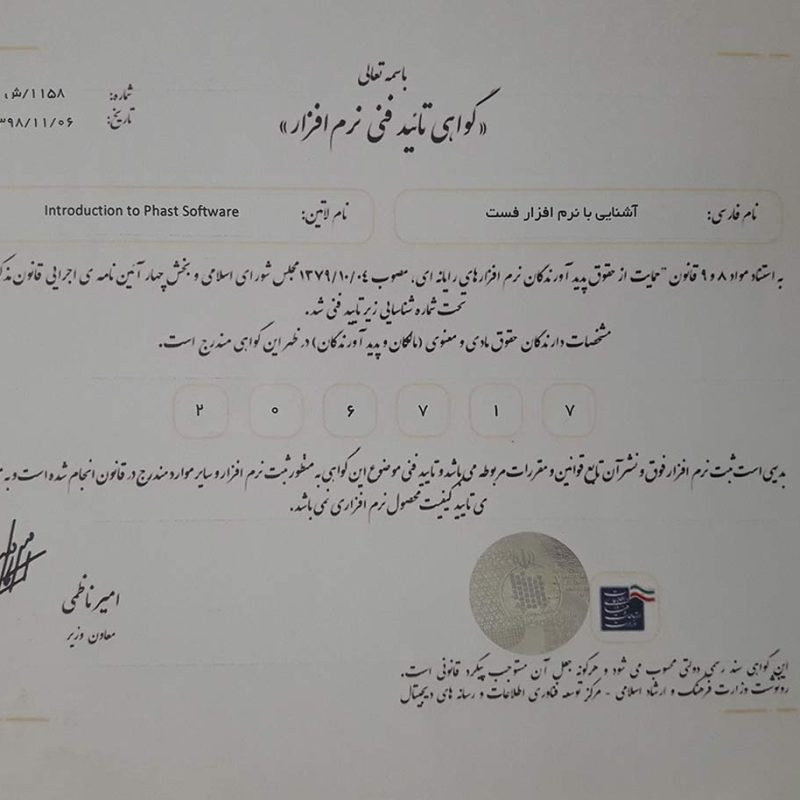 باسمه تعالی
«گواهی تائید فنی نرم افزار»
شماره: ۱۱۵۸/ش
تاریخ: ۳۹۸/۱۱/۰۶
نام فارسی: آشنایی با نرم افزار فست
نام لاتین: Introduction to Phast Software
به استناد مواد ۸ و ۹ قانون "حمایت از حقوق پدید آورندگان نرم افزارهای رایانه ای، مصوب ۱۳۷۹/۱۰/۰۴ مجلس شورای اسلامی و بخش چهار آئین نامه ی اجرایی قانون
تحت شماره شناسایی زیر تایید فنی شد.
مشخصات دارندگان حقوق مادی و معنوی (مالکان و پدید آورندگان) در ظهر این گواهی مندرج است.
۲ ۰ ۶ ۷ ۱ ۷
بدیهی است ثبت نرم افزار فوق و نشر آن تابع قوانین و مقررات مربوطه می باشد و تایید فنی موضوع این گواهی به منظور ثبت نرم افزار و سایر موارد مندرج در قانون انجام شده است و به
ی تایید کیفیت محصول نرم افزاری نمی باشد.
امیر ناظمی
معاون وزیر
این گواهی سند رسمی دولتی محسوب می شود و هرگونه جعل آن مستوجب پیگرد قانونی است.
رونوشت وزارت فرهنگ و ارشاد اسلامی - مرکز توسعه فناوری اطلاعات و رسانه های دیجیتال